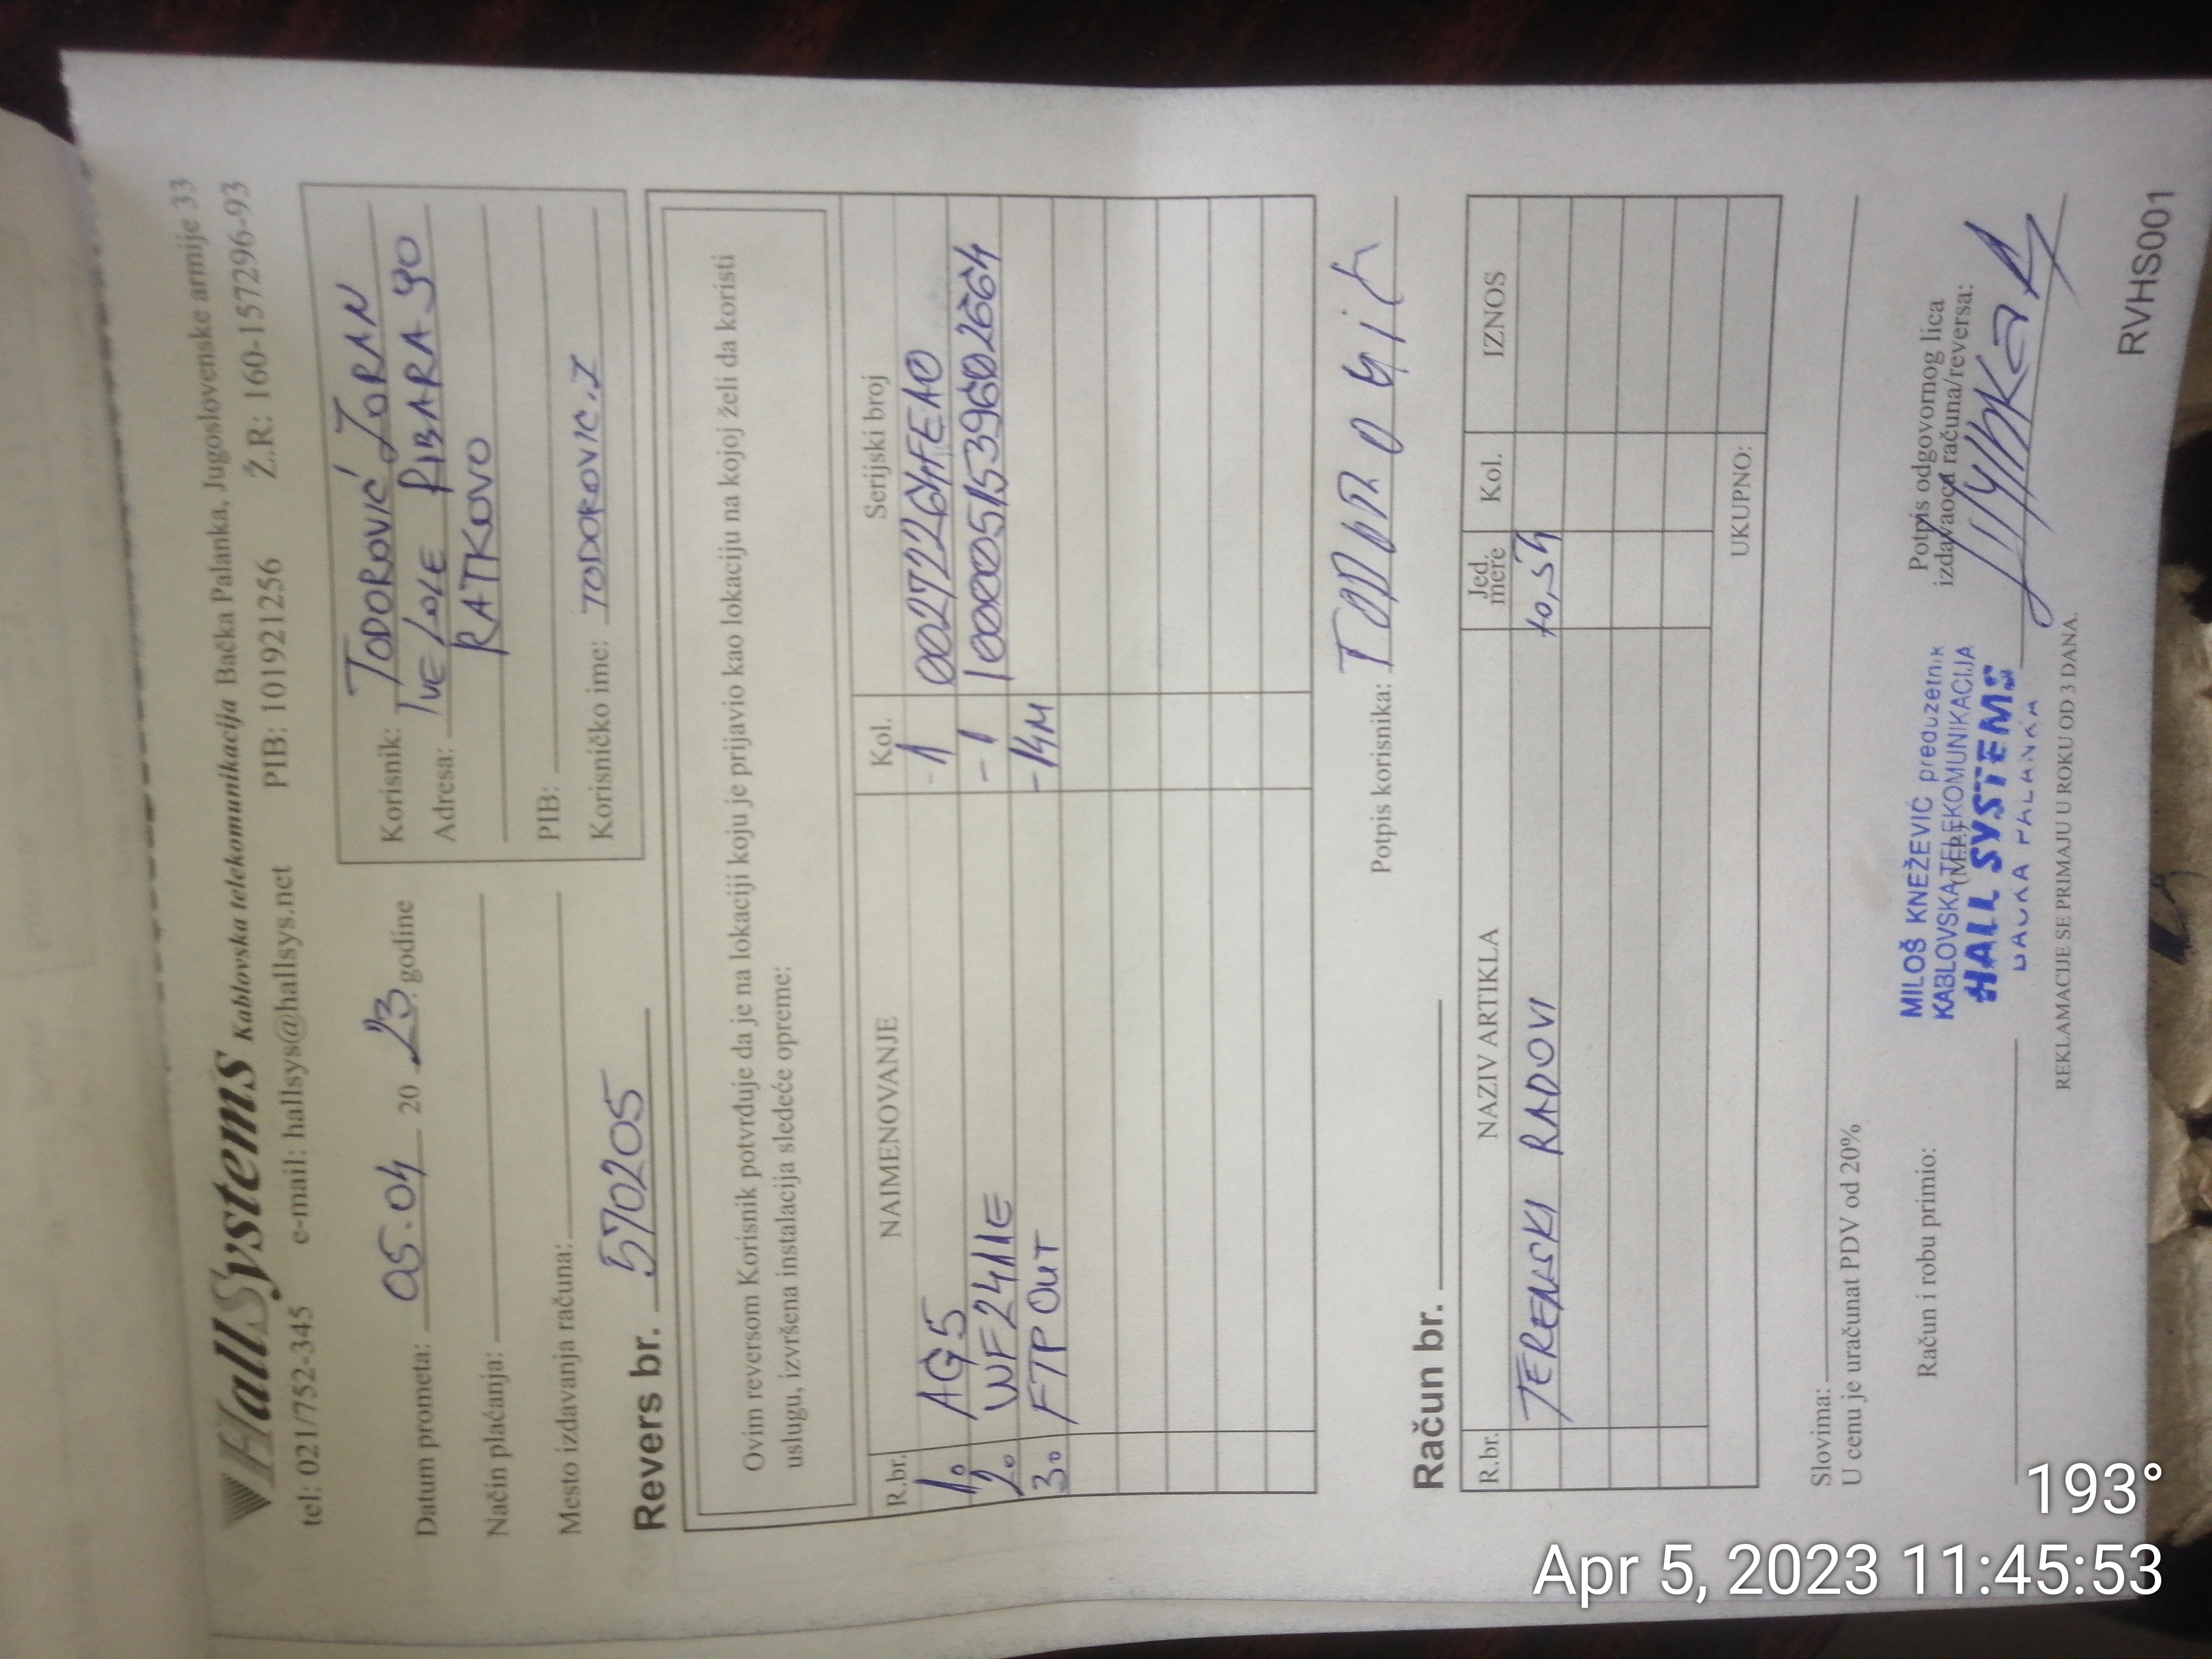 HallSystems Kablovska telekomunikacija Bačka Palanka, Jugoslovenske armije 33
tel: 021/752-345 e-mail: hallsys@hallsys.net PIB: 101921256 Ž.R: 160-157296-93
Datum prometa: 05.04 2023. godine
Način plaćanja:
Mesto izdavanja računa:
Korisnik: TODOROVIĆ ZORAN
Adresa: IVE LOLE RIBARA 90
RATKOVO
PIB:
Korisničko ime: TODOROVIC.Z
Revers br. 570205
Ovim reversom Korisnik potvrđuje da je na lokaciji koju je prijavio kao lokaciju na kojoj želi da koristi
uslugu, izvršena instalacija sledeće opreme:
R.br. NAIMENOVANJE Kol. Serijski broj
1. AG5 -1 00272264FEA0
2. WF2411E -1 1000051539602664
3. FTP OUT -14M
Potpis korisnika:
Račun br.
R.br. NAZIV ARTIKLA Jed. mere Kol. IZNOS
TERENSKI RADOVI
UKUPNO:
Slovima:
U cenu je uračunat PDV od 20%
Račun i robu primio:
(M.P.)
MILOŠ KNEŽEVIĆ preduzetnik
KABLOVSKA TELEKOMUNIKACIJA
HALL SYSTEMS
BAČKA PALANKA
Potpis odgovornog lica
izdavaoca računa/reversa:
REKLAMACIJE SE PRIMAJU U ROKU OD 3 DANA.
RVHS001
193°
Apr 5, 2023 11:45:53